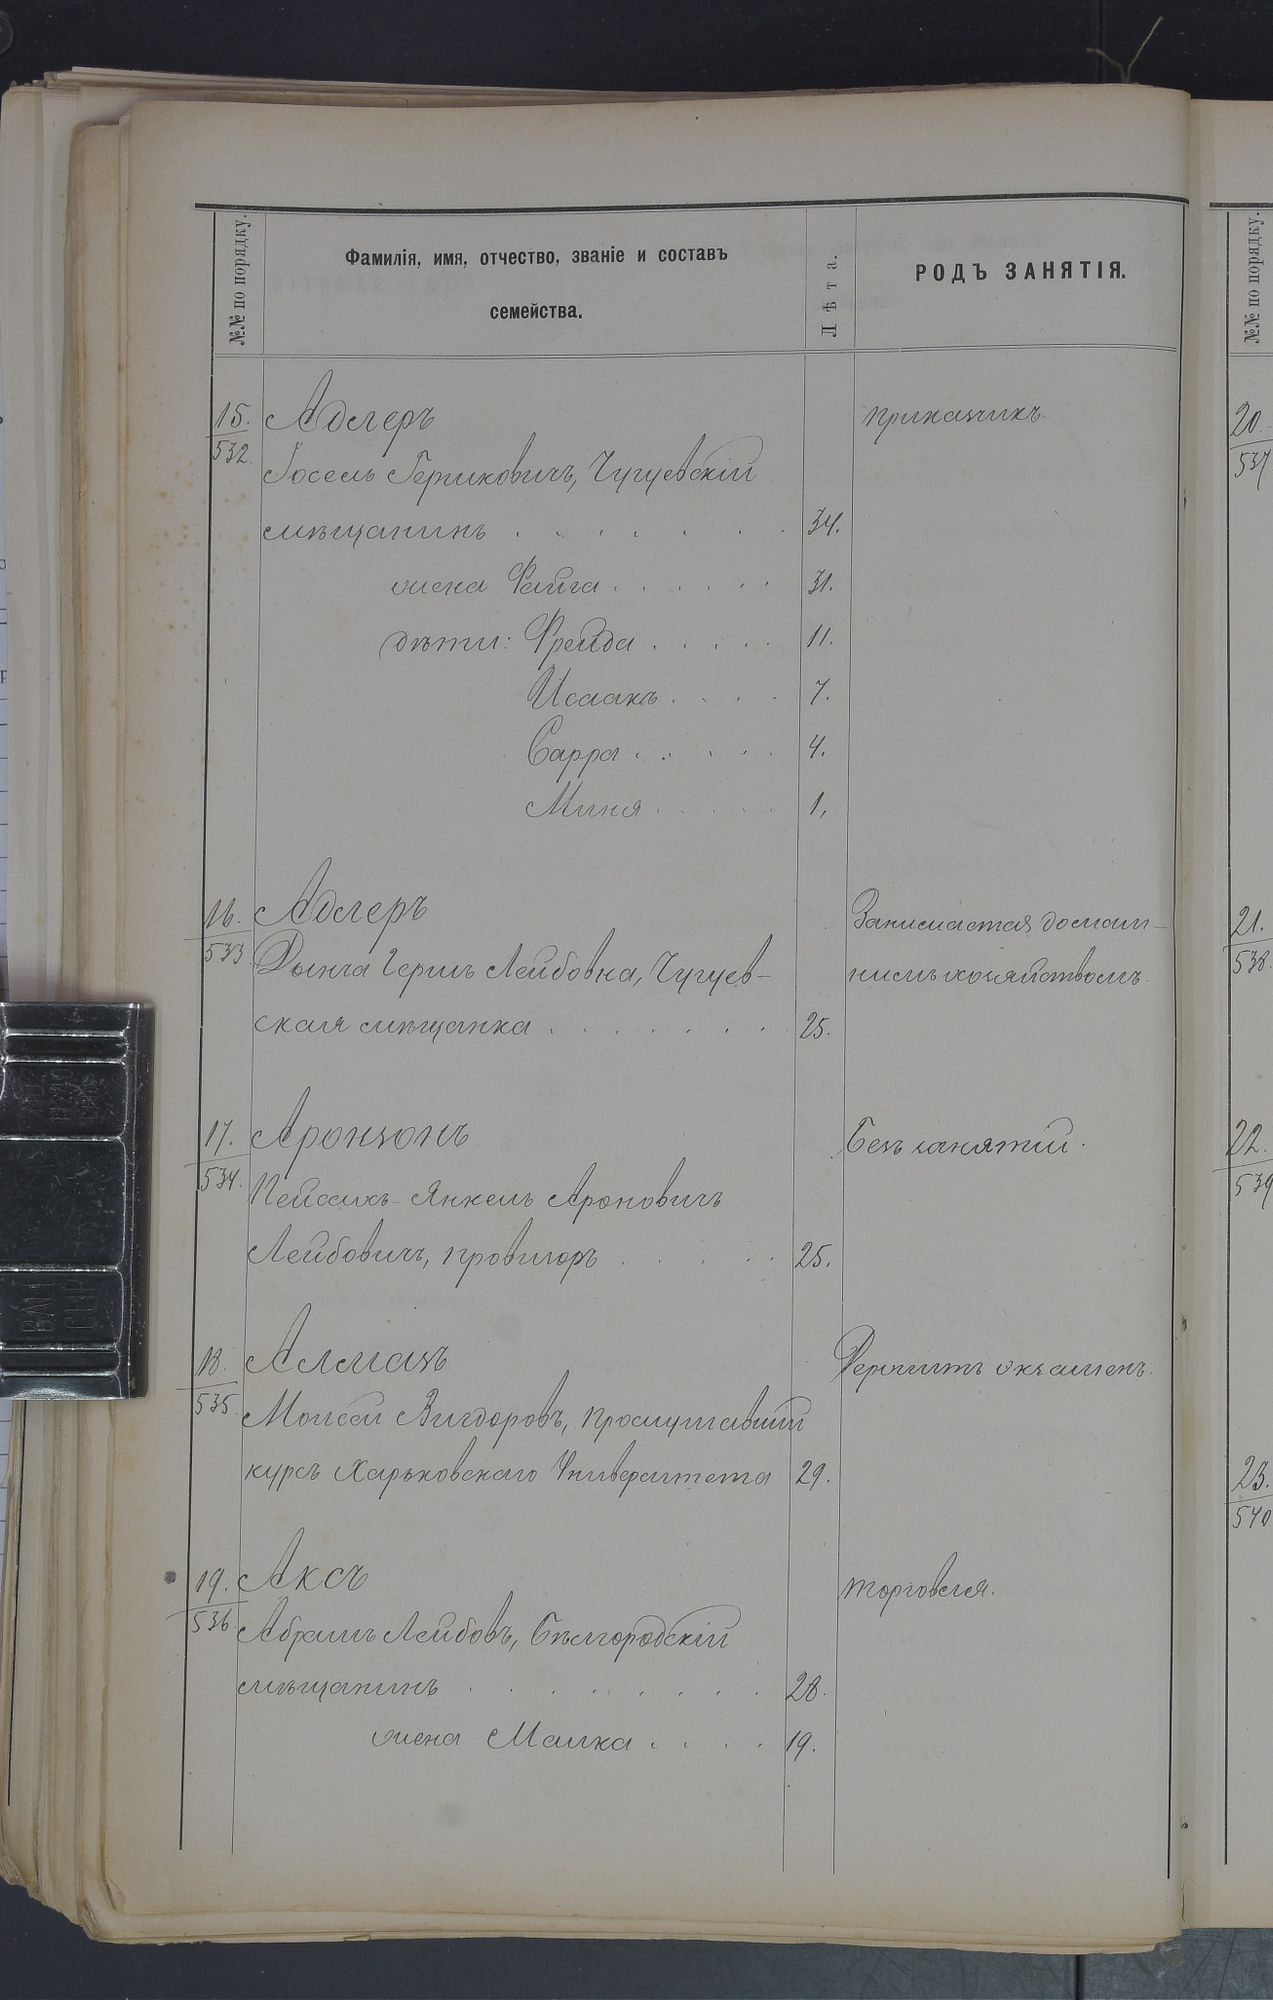 №№ по порядку.
Фамилія, имя, отчество, званіе и составъ
семейства.
Лѣта.
РОДЪ ЗАНЯТІЯ.
15.
532.
Адлеръ
приказчикъ.
Іосель Гершковичъ, Чугуевскій
мѣщанинъ . . . . . . . 34.
жена Файга . . . . . . 31.
дѣти: Фрейда . . . . . 11.
Исаакъ . . . . 7.
Сарра . . . . . 4.
Миня . . . . . 1,
16.
533
Адлеръ
Занимается домаш-
Герш Лейбовна, Чугуев-
нимъ хозяйствомъ.
ская мѣщанка . . . . . . . 25.
17.
534.
Аронзонъ
Безъ занятій.
Пейсахъ-Янкель Ароновичъ
Лейбовичъ, провизоръ . . . . . 25.
18.
535.
Алмазъ
Держитъ экзаменъ.
Моисей Вигдоровъ, прослушавшій
курсъ Харьковскаго Университета 29.
19.
536
Аксъ
торговля.
Абрамъ Лейбовъ, Бѣлгородскій
мѣщанинъ . . . . . . . . . 28.
жена Малка . . . . 19.
№№ по порядку.
20.
537
21.
538.
22.
539
23.
540
BALL
CLIP